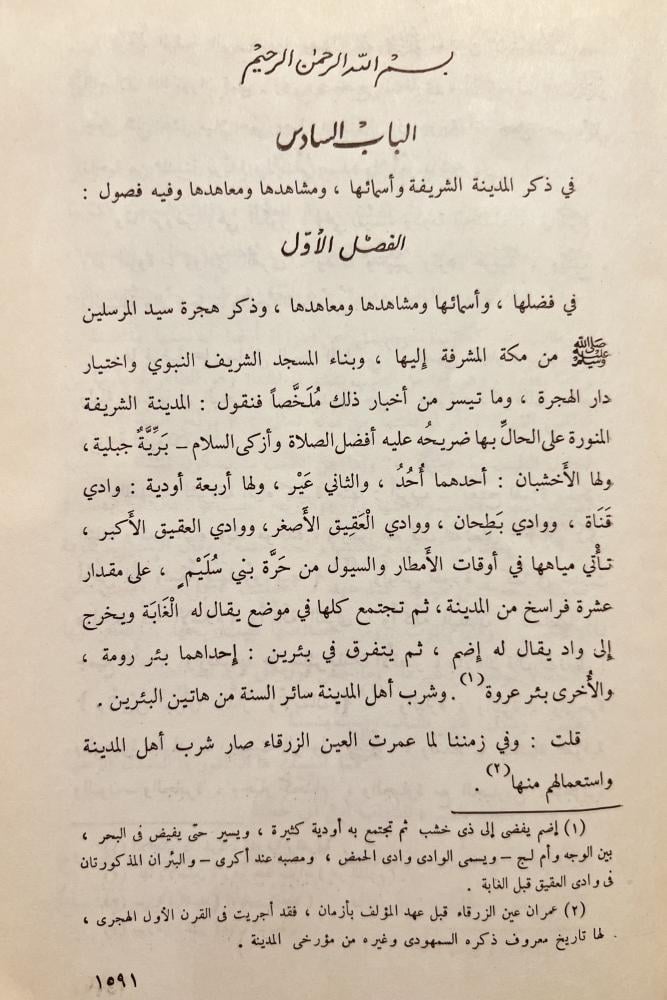 بسم الله الرحمن الرحيم
الباب السادس
في ذكر المدينة الشريفة وأسمائها ، ومشاهدها ومعاهدها وفيه فصول :
الفصل الأوّل
في فضلها ، وأسمائها ومشاهدها ومعاهدها ، وذكر هجرة سيد المرسلين
ﷺ من مكة المشرفة إليها ، وبناء المسجد الشريف النبوي واختيار
دار الهجرة ، وما تيسر من أخبار ذلك مُلَخَّصاً فنقول : المدينة الشريفة
المنورة على الحالِّ بها ضريحُه عليه أفضل الصلاة وأزكى السلام – بَرِّيَّةٌ جبلية ،
ولها الأَخشبان : أحدهما أُحُدُ ، والثاني عَيْر ، ولها أربعة أودية : وادي
قَنَاة ، ووادي بَطِحان ، ووادي الْعَقِيق الأَصغر، ووادي العقيق الأَكبر ،
تأْتي مياهها في أوقات الأَمطار والسيول من حَرَّة بني سُلَيْمٍ ، على مقدار
عشرة فراسخ من المدينة ، ثم تجتمع كلها في موضع يقال له الْغَابَة ويخرج
إلى واد يقال له إضم ، ثم يتفرق في بئرين : إحداهما بئر رومة ،
والأُخرى بئر عروة(١) . وشرب أهل المدينة سائر السنة من هاتين البئرين .
قلت : وفي زمننا لما عمرت العين الزرقاء صار شرب أهل المدينة
واستعمالهم منها(٢) .
(١) إضم يفضى إلى ذى خشب ثم تجتمع به أودية كثيرة ، ويسير حتى يفيض فى البحر ،
بين الوجه وأم لج – ويسمى الوادى وادى الحمض ، ومصبه عند أكرى – والبئران المذكورتان
فى وادى العقيق قبل الغابة .
(٢) عمران عين الزرقاء قبل عهد المؤلف بأزمان ، فقد أجريت فى القرن الأول الهجرى ،
لها تاريخ معروف ذكره السمهودى وغيره من مؤرخى المدينة .
١٥٩١